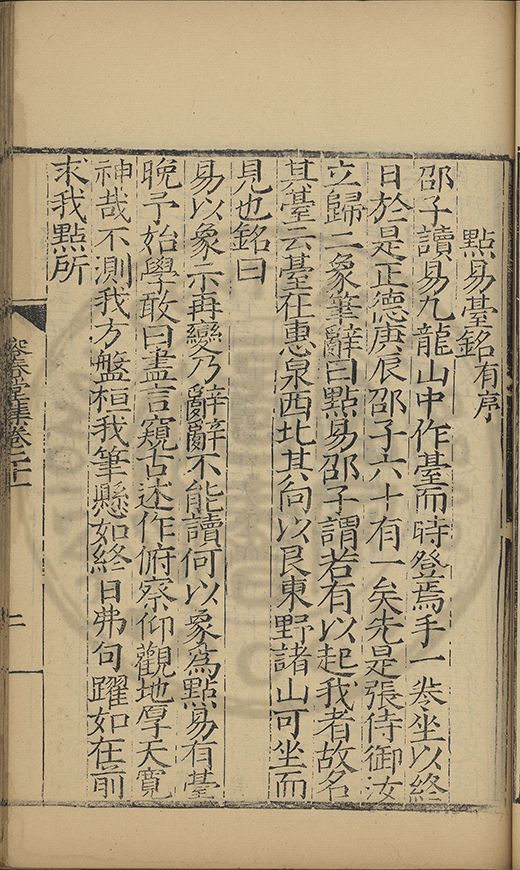 點易臺銘有序
邵子讀易九龍山中作臺而時登焉手一卷坐以終
日於是正德庚辰邵子六十有一矣先是張侍御汝
立歸二象筆辭曰點易邵子謂若有以起我者故名
其臺云臺在惠泉西北其向以艮東野諸山可坐而
見也銘曰
易以象示再變乃辭辭不能讀何以象為點易有臺
晚予始學敢曰盡言窺古述作俯察仰觀地厚天寬
神哉不測我方盤桓我筆懸如終日弗句躍如在前
求我點所
容春堂集卷二
二